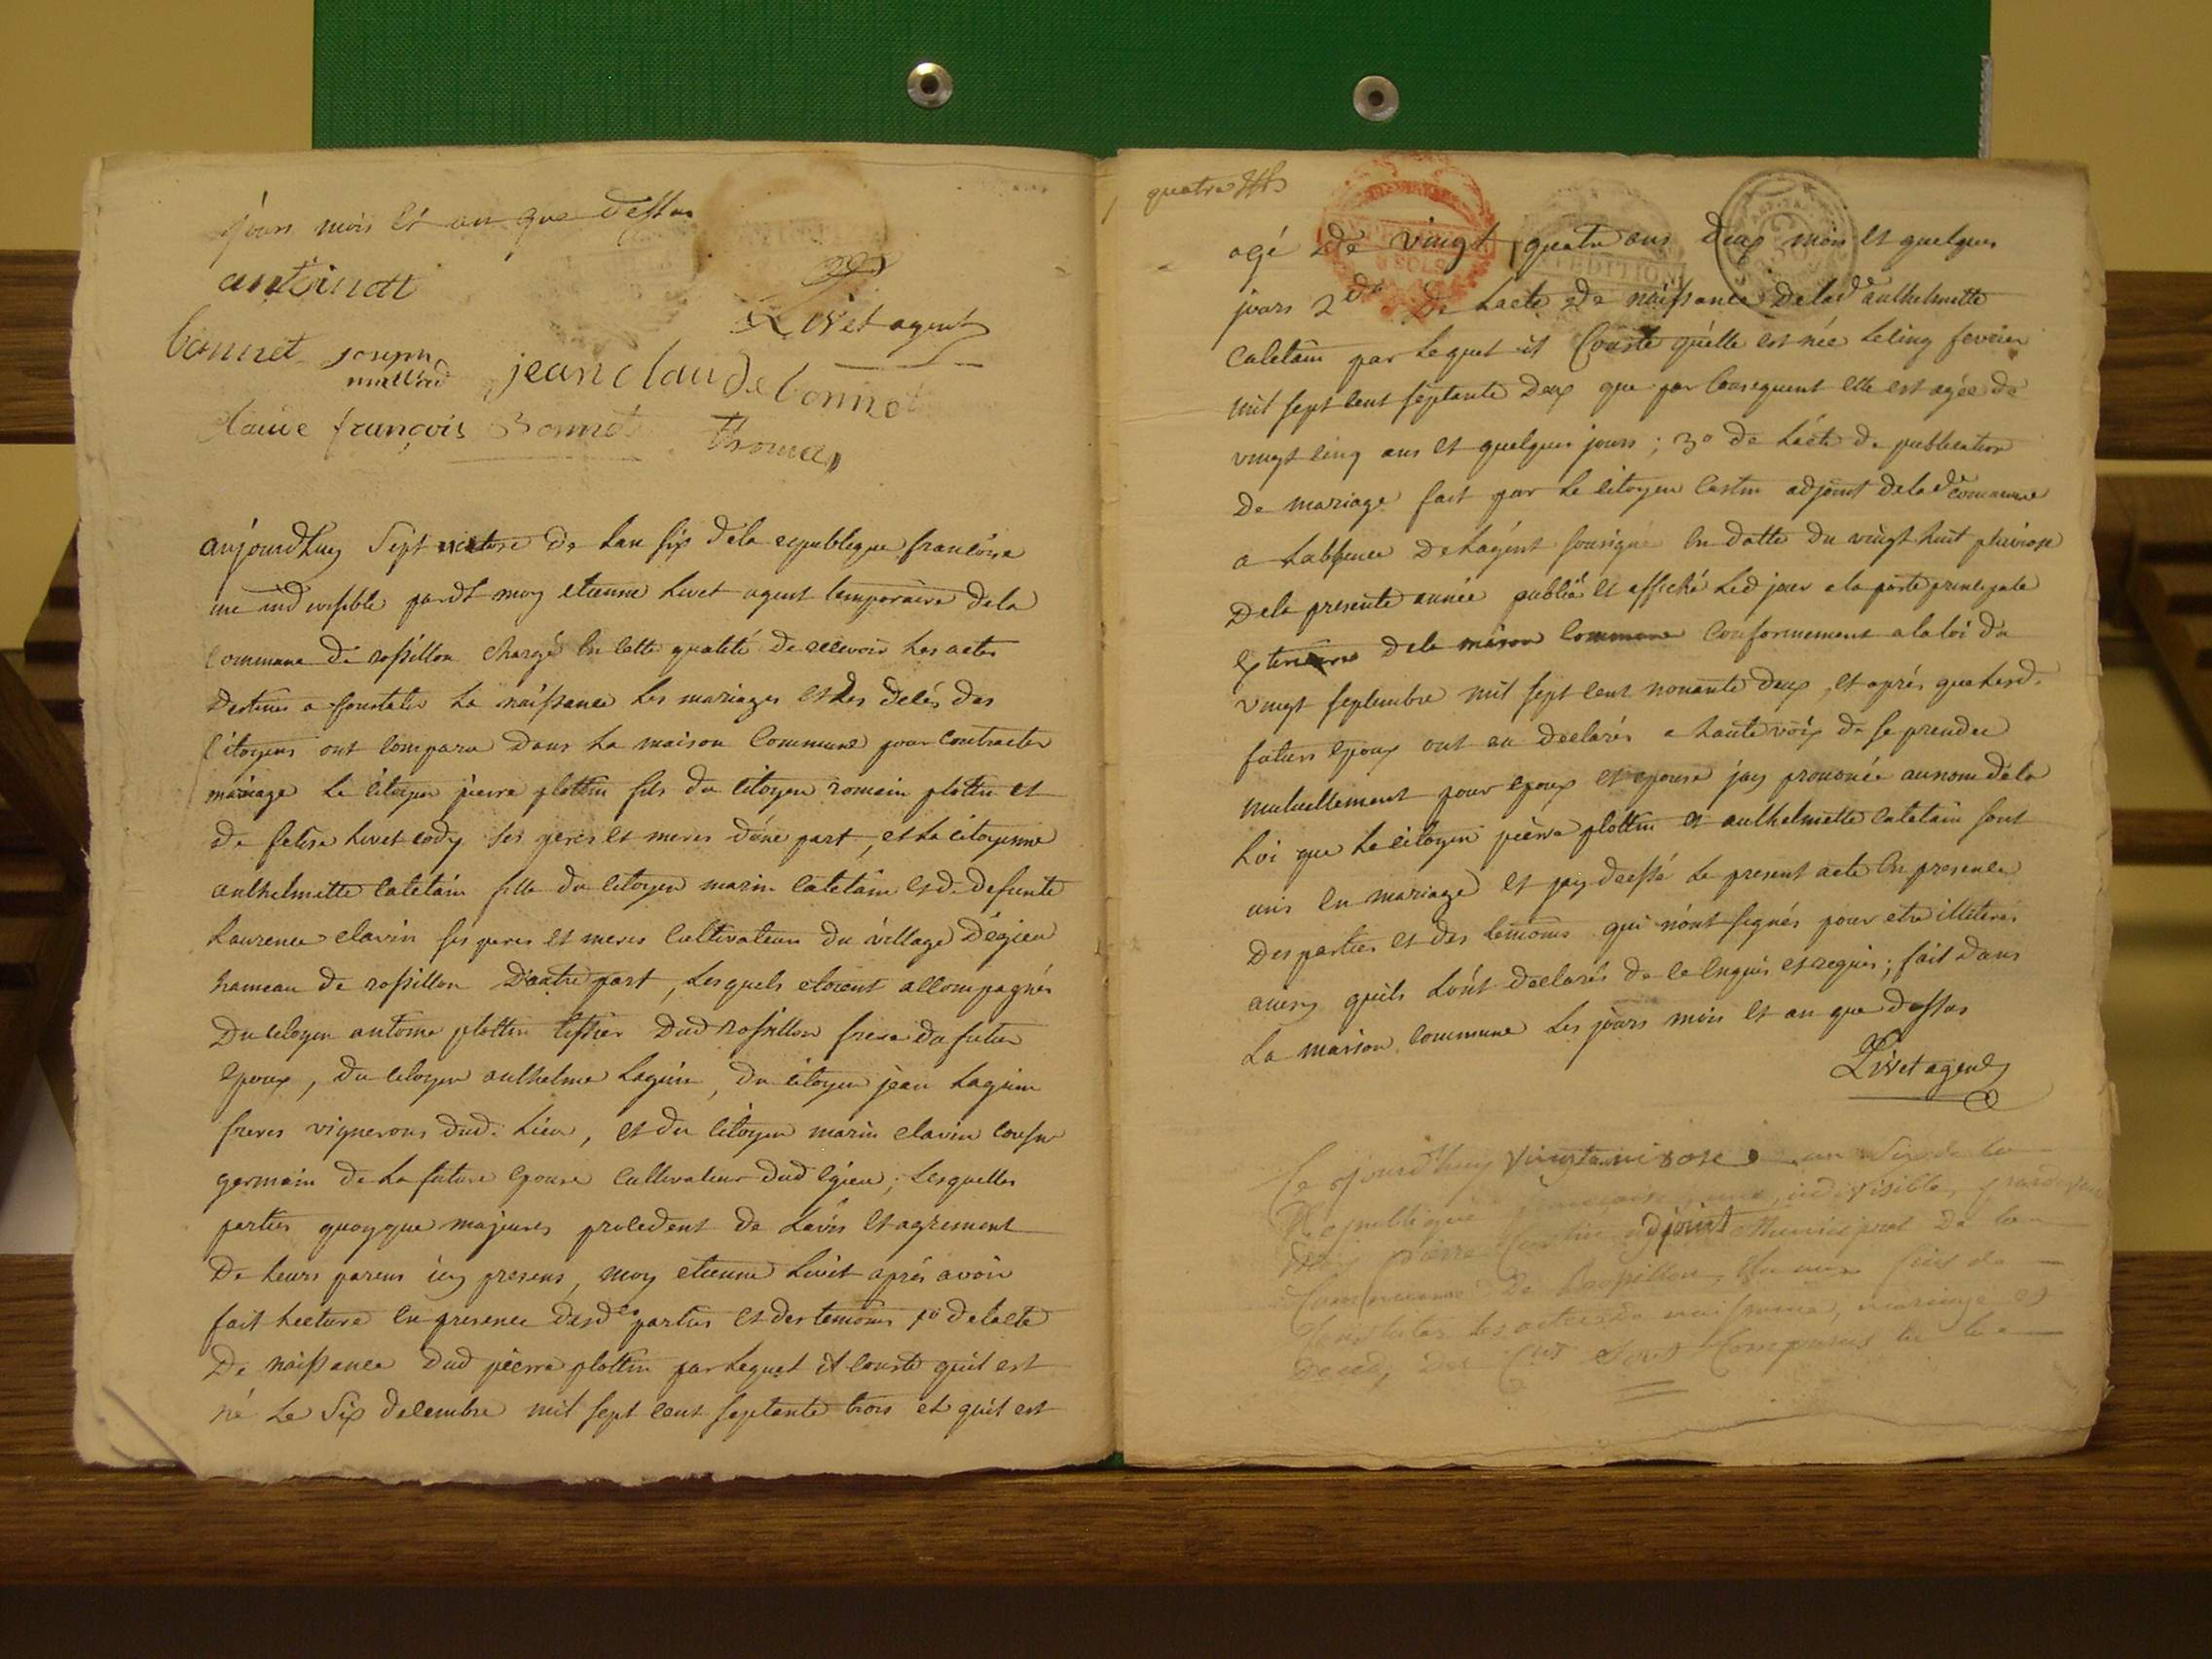 jours mois et an que dessus
antoinatt
Livet agent
bonnet joseph jean claude bonnet
claude françois Bonnet Thomas
aujourdhuy Sept de lan six dela republique francoise
une indivisible pardt moy etienne Livet agent temporaire dela
commune de rossillon chargé en cette qualité de recevoir les actes
destinés a constater la naissance les mariages et les décés des
citoyens ont comparu dans la maison commune pour contracter
mariage le citoyen pierre plottin fils du citoyen romain plottin et
de Livet cody ses peres et meres d'une part, et la citoyenne
anthelmette catelain fille du citoyen marin catelain et de defunte
Laurence clavin ses peres et meres cultivateurs du village d'égieu
hameau de rossillon d'autre part, Lesquels etoient accompagnés
du citoyen antoine plottin dud rossillon frere du futur
epoux, du citoyen anthelme Laguin, du citoyen jean Laguin
freres vignerons dud. Lieu, et du citoyen marin clavin cousin
germain de la future epouse cultivateur dud egieu; Lesquelles
parties quoyque majeures procedent de Lavis et agrement
de leurs parens icy presens, moy etienne Livet aprés avoir
fait lecture en presence desdes parties et des temoins 1o delacte
de naissance dud pierre plottin par Lequel il conste quil est
né Le Six decembre mil sept cent septante trois et quil est
quatre
agé de vingt quatre ans deux mois et quelques
jours 2do De Lacte de naissance delade anthelmette
catelain par Lequel il Conste qu'elle est née Le cinq fevrier
mil sept cent septante deux que par Consequent elle est agée de
vingt cinq ans et quelques jours; 3o de Lacte de publication
de mariage fait par Le citoyen Costin adjoint delade commune
a Labsence de Lagent sousigné en datte du vingt huit pluviose
dela presente année publié et affiché Led jour a la porte principale
exterieure dela maison commune conformement a la loi du
vingt septembre mil sept cent nonante deux, et aprés que Lesd.
futurs epoux ont eu declarés a haute voix de se prendre
mutuellement pour epoux et epouse jay prononcé au nom dela
Loi que Le citoyen pierre plottin et anthelmette catelain sont
unis en mariage et jay dressé Le present acte en presence
des parties et des temoins qui n'ont signés pour etre illiterés
ainsy quils L'ont declarés de ce enquis et requis; fait dans
La maison commune Les jours mois et an que dessus
Livet agent
Ce jourd'huy vingt nivose an Six de la
Republique francaise une, indivisible, pardevant
moy Pierre Costin adjoint Municipal De la
Commune De Rossillon,
Constater les actes de naissance, mariage et
deced, des Cens Sont Comparus en la